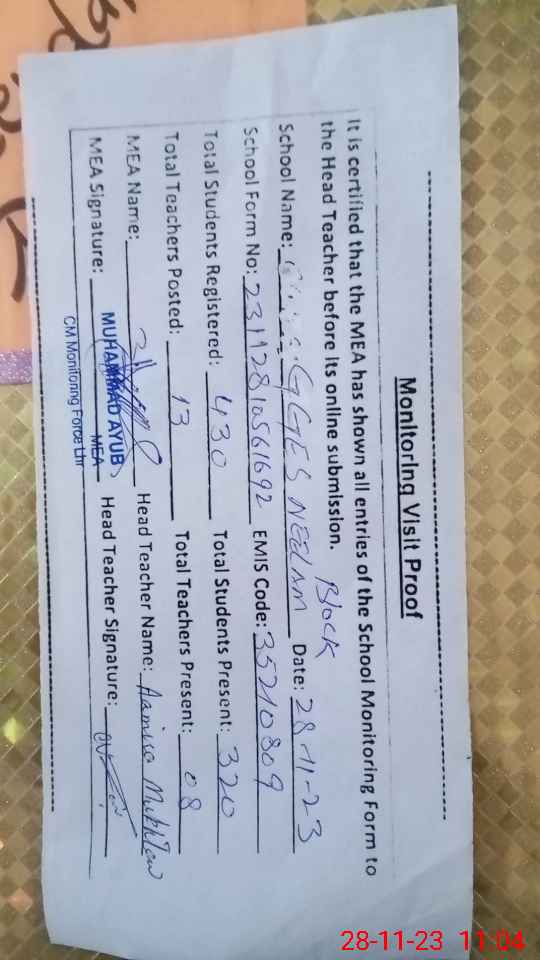 Monitoring Visit Proof
It is certified that the MEA has shown all entries of the School Monitoring Form to
the Head Teacher before its online submission.
School Name: GGES NEELAM Block Date: 28-11-23
School Form No: 23112810561692 EMIS Code: 35210809
Total Students Registered: 430 Total Students Present: 320
Total Teachers Posted: 13 Total Teachers Present: 08
MEA Name: Head Teacher Name:
MEA Signature: Head Teacher Signature:
MUHAMMAD AYUB
MEA
CM Monitoring Force Lhr
28-11-23 11:04